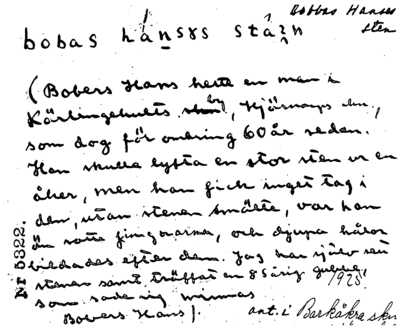 Bobbas Hanses
sten
bobas hánsəs stá̂ın
(Bobers Hans hette en man i
Kärlingehults by, Hjärnarps sn.,
som dog för omkring 60 år sedan.
Han skulle lyfta en stor sten ur en
åker, men han fick inget tag i
den, utan stenen smälte, var han
än satte fingrarna, och djupa hålor
bildades efter dem. Jag har själv sett
stenen samt träffat en 85 årig gubbe,
som sade sig minnas
Bobers Hans).
1925
ant. i Barkåkra skn
Nr 5322.